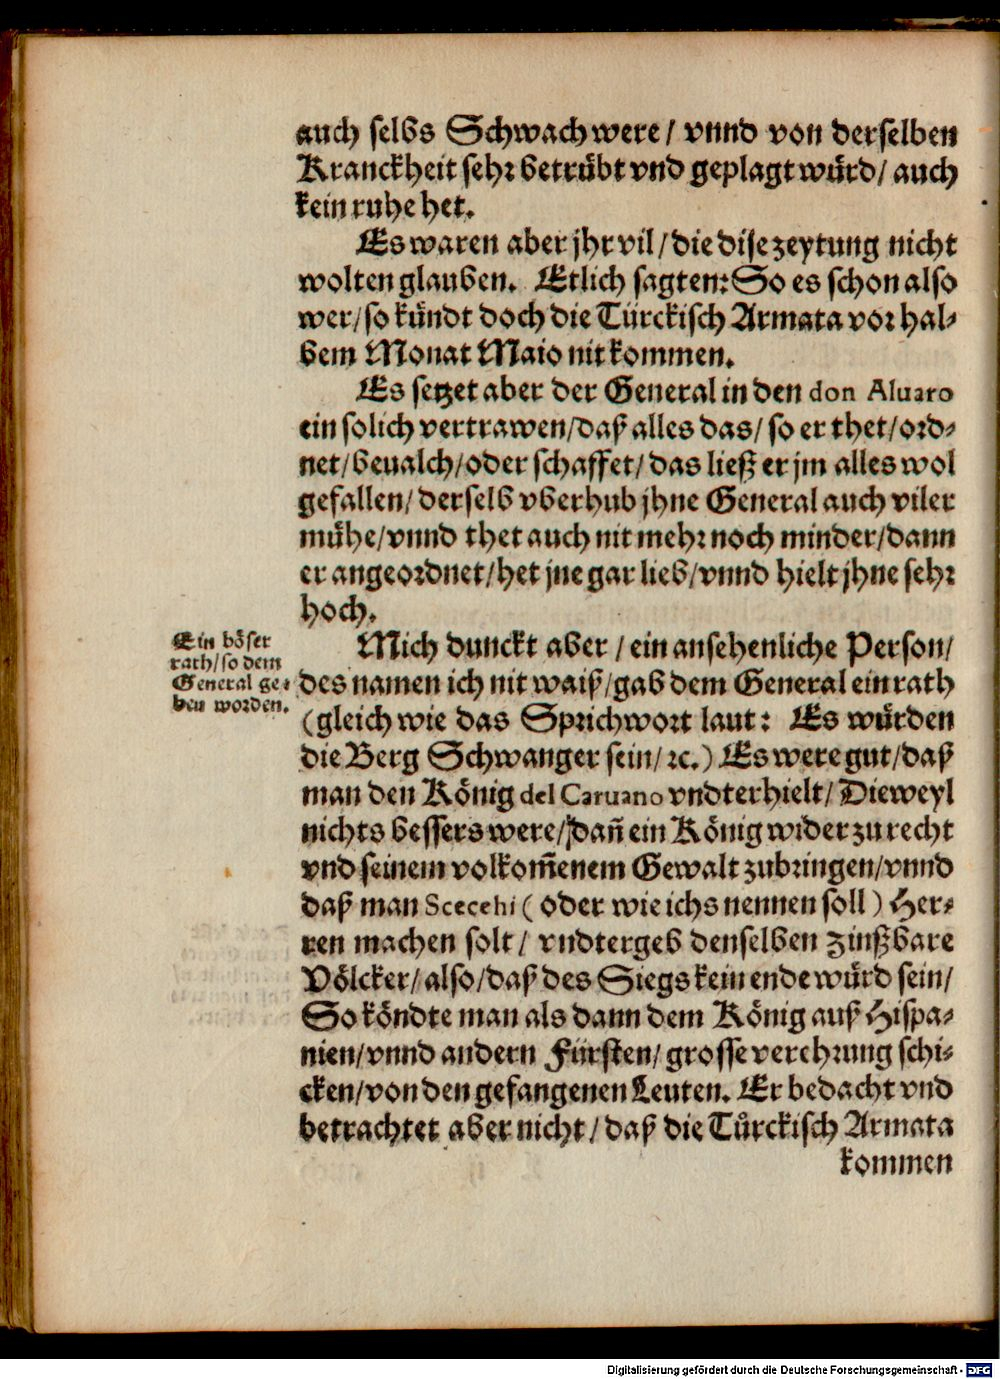 auch selbs Schwach were/ vnnd von derselben
Kranckheit sehr betrübt vnd geplagt würd/ auch
kein ruhe het.
Es waren aber jhr vil/ die dise zeytung nicht
wolten glauben. Etlich sagten: So es schon also
wer/ so kündt doch die Türckisch Armata vor hal-
bem Monat Maio nit kommen.
Es setzet aber der General in den don Aluaro
ein solich vertrawen/ daß alles das/ so er thet/ ord-
net/ beualch/ oder schaffet/ das ließ er jm alles wol
gefallen/ derselb vberhub jhne General auch viler
mühe/ vnnd thet auch nit mehr noch minder/ dann
er angeordnet/ het jne gar lieb/ vnnd hielt jhne sehr
hoch.
Ein böser
rath/ so dem
General ge-
ben worden.
Mich dunckt aber/ ein ansehenliche Person/
des namen ich nit waiß/ gab dem General ein rath
(gleich wie das Sprichwort laut: Es würden
die Berg Schwanger sein/ ꝛc.) Es were gut/ daß
man den König del Caruano vndterhielt/ Dieweyl
nichts bessers were/ dañ ein König wider zu recht
vnd seinem volkom̃enem Gewalt zubringen/ vnnd
daß man Scecehi (oder wie ichs nennen soll) Her-
ren machen solt/ vndtergeb denselben zinßbare
Völcker/ also/ daß des Siegs kein ende würd sein/
So köndte man als dann dem König auß Hispa-
nien/ vnnd andern Fürsten/ grosse verehrung schi-
cken/ von den gefangenen Leuten. Er bedacht vnd
betrachtet aber nicht/ daß die Türckisch Armata
kommen
Digitalisierung gefördert durch die Deutsche Forschungsgemeinschaft - DFG